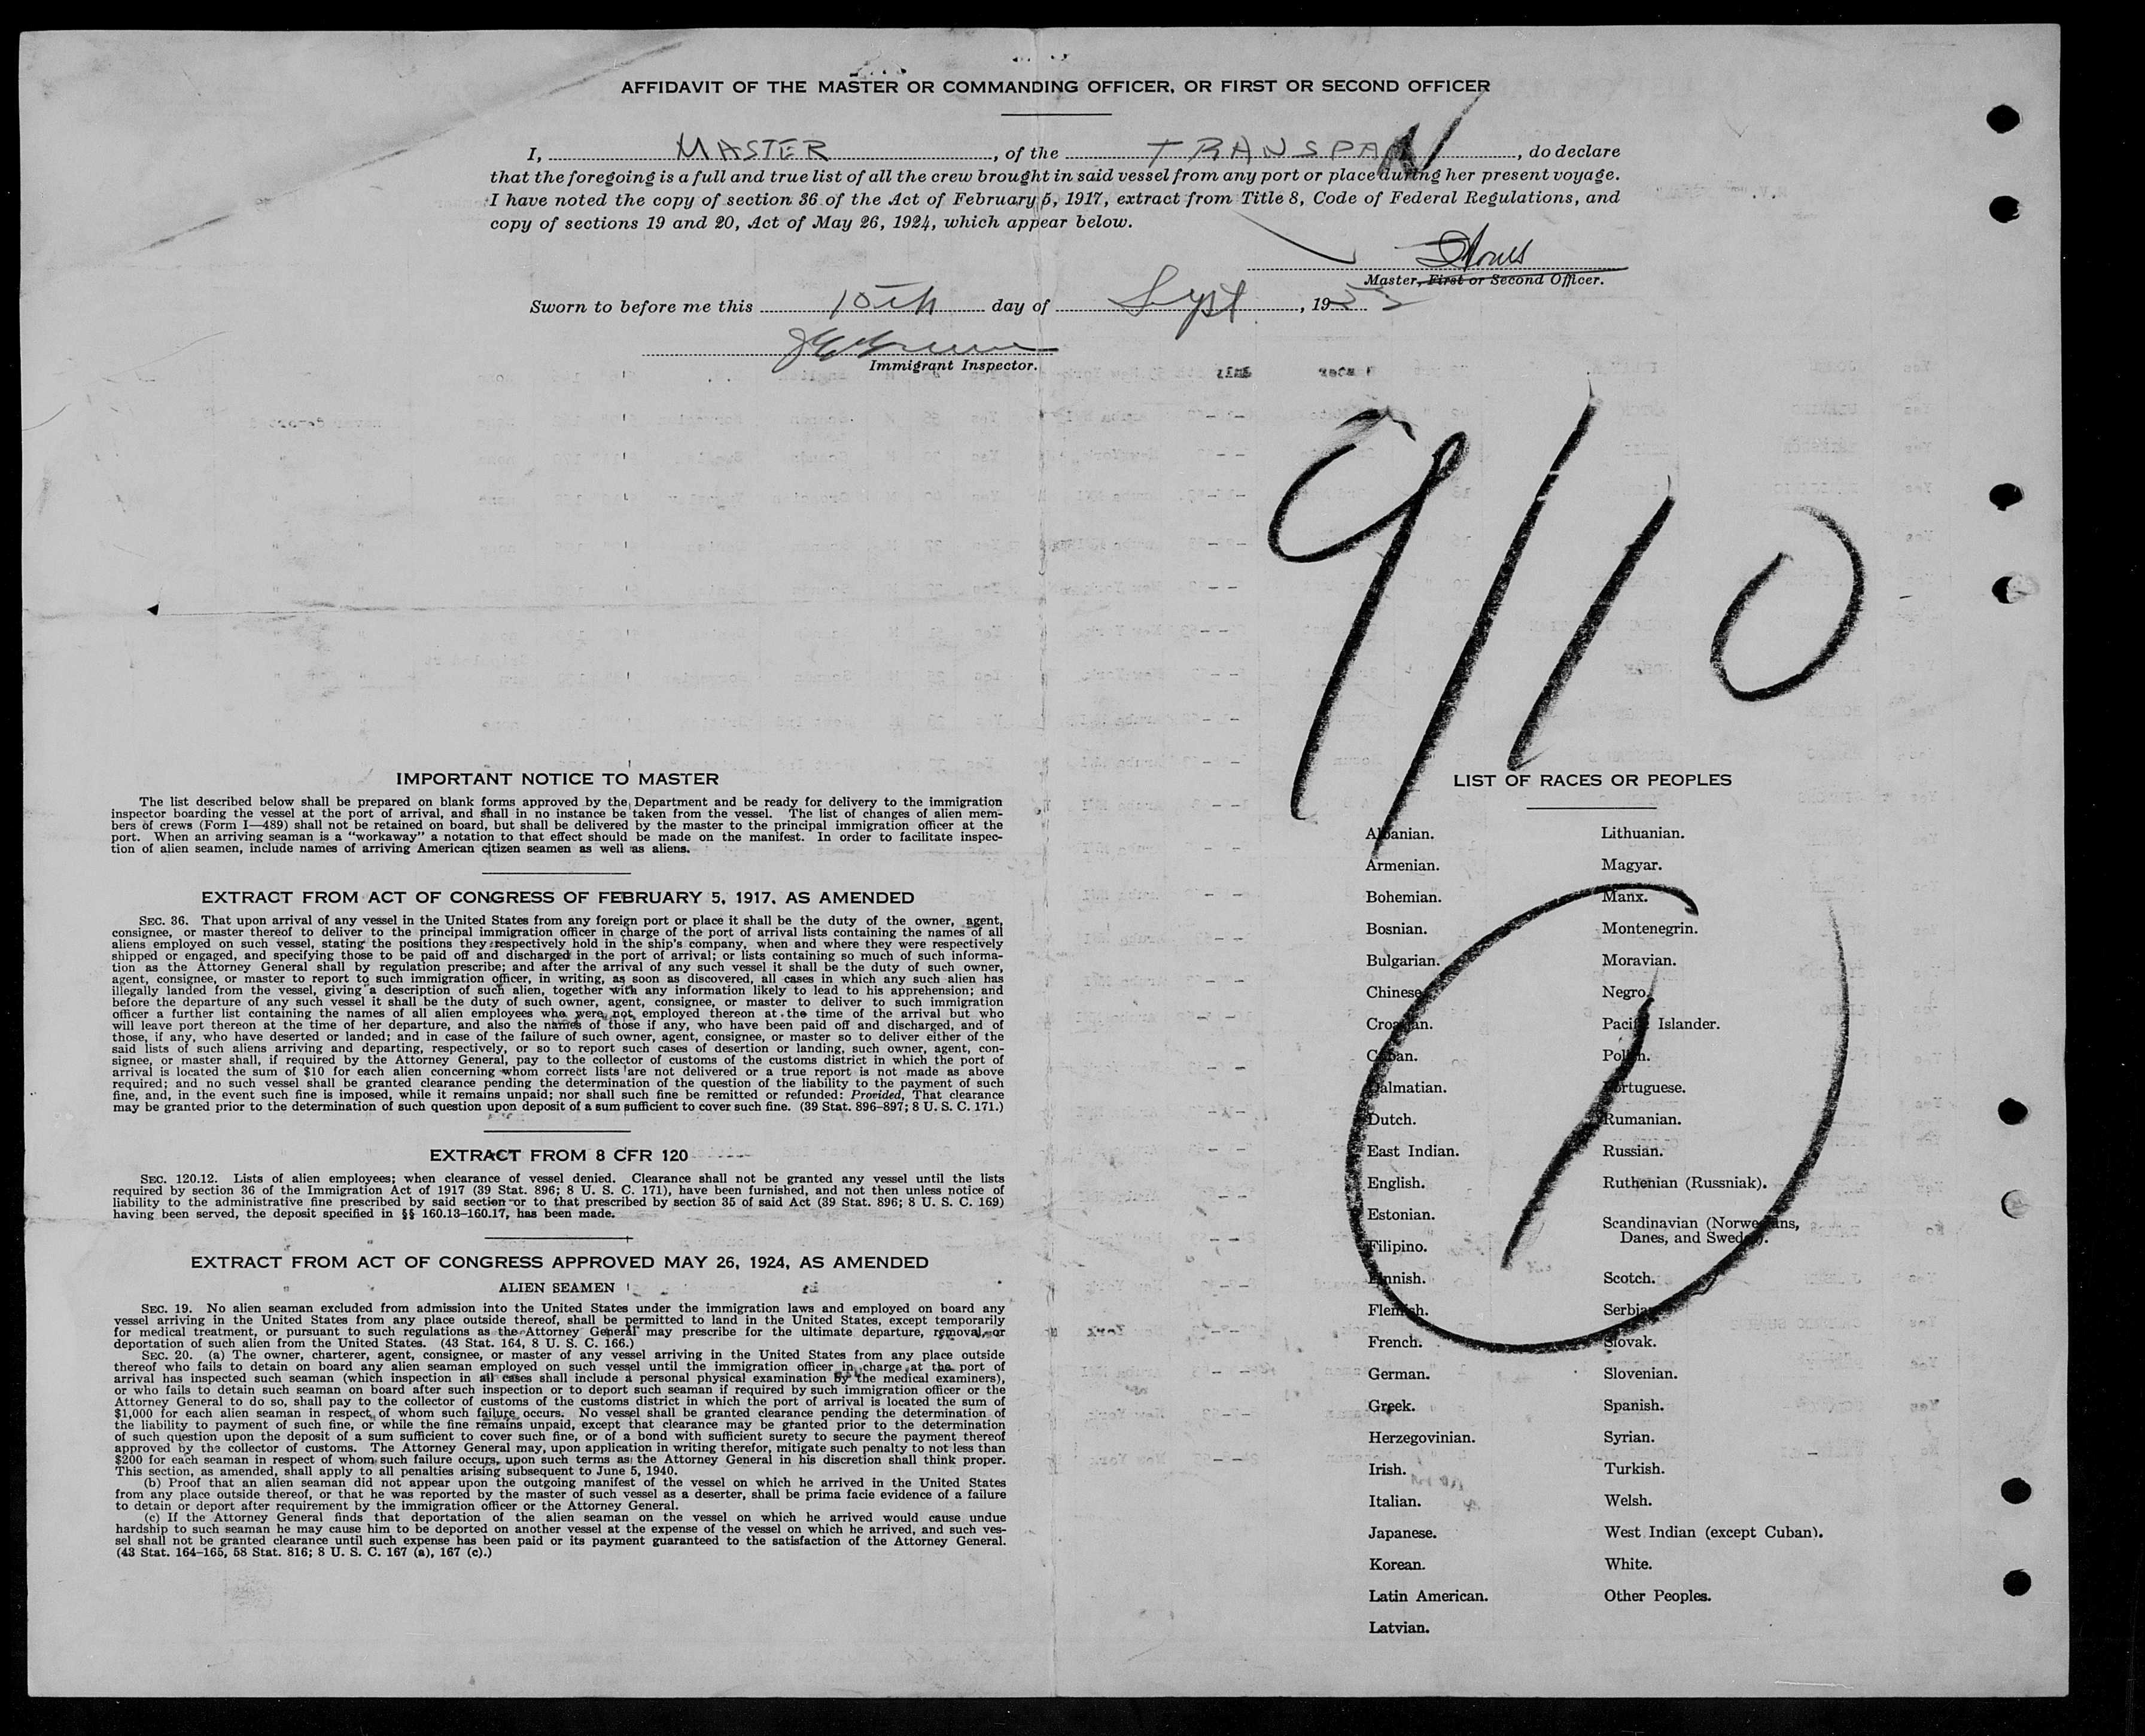 AFFIDAVIT OF THE MASTER OR COMMANDING OFFICER, OR FIRST OR SECOND OFFICER
I, MASTER, of the TRANSPAN, do declare
that the foregoing is a full and true list of all the crew brought in said vessel from any port or place during her present voyage.
I have noted the copy of section 36 of the Act of February 5, 1917, extract from Title 8, Code of Federal Regulations, and
copy of sections 19 and 20, Act of May 26, 1924, which appear below.
Master, First or Second Officer.
Sworn to before me this 10th day of Sept, 1953
Immigrant Inspector.
9/10
IMPORTANT NOTICE TO MASTER
The list described below shall be prepared on blank forms approved by the Department and be ready for delivery to the immigration
inspector boarding the vessel at the port of arrival, and shall in no instance be taken from the vessel. The list of changes of alien mem-
bers of crews (Form I—489) shall not be retained on board, but shall be delivered by the master to the principal immigration officer at the
port. When an arriving seaman is a "workaway" a notation to that effect should be made on the manifest. In order to facilitate inspec-
tion of alien seamen, include names of arriving American citizen seamen as well as aliens.
EXTRACT FROM ACT OF CONGRESS OF FEBRUARY 5, 1917, AS AMENDED
SEC. 36. That upon arrival of any vessel in the United States from any foreign port or place it shall be the duty of the owner, agent,
consignee, or master thereof to deliver to the principal immigration officer in charge of the port of arrival lists containing the names of all
aliens employed on such vessel, stating the positions they respectively hold in the ship's company, when and where they were respectively
shipped or engaged, and specifying those to be paid off and discharged in the port of arrival; or lists containing so much of such informa-
tion as the Attorney General shall by regulation prescribe; and after the arrival of any such vessel it shall be the duty of such owner,
agent, consignee, or master to report to such immigration officer, in writing, as soon as discovered, all cases in which any such alien has
illegally landed from the vessel, giving a description of such alien, together with any information likely to lead to his apprehension; and
before the departure of any such vessel it shall be the duty of such owner, agent, consignee, or master to deliver to such immigration
officer a further list containing the names of all alien employees who were not employed thereon at the time of the arrival but who
will leave port thereon at the time of her departure, and also the names of those if any, who have been paid off and discharged, and of
those, if any, who have deserted or landed; and in case of the failure of such owner, agent, consignee, or master so to deliver either of the
said lists of such aliens arriving and departing, respectively, or so to report such cases of desertion or landing, such owner, agent, con-
signee, or master shall, if required by the Attorney General, pay to the collector of customs of the customs district in which the port of
arrival is located the sum of $10 for each alien concerning whom correct lists are not delivered or a true report is not made as above
required; and no such vessel shall be granted clearance pending the determination of the question of the liability to the payment of such
fine, and, in the event such fine is imposed, while it remains unpaid; nor shall such fine be remitted or refunded: Provided, That clearance
may be granted prior to the determination of such question upon deposit of a sum sufficient to cover such fine. (39 Stat. 896–897; 8 U. S. C. 171.)
EXTRACT FROM 8 CFR 120
SEC. 120.12. Lists of alien employees; when clearance of vessel denied. Clearance shall not be granted any vessel until the lists
required by section 36 of the Immigration Act of 1917 (39 Stat. 896; 8 U. S. C. 171), have been furnished, and not then unless notice of
liability to the administrative fine prescribed by said section or to that prescribed by section 35 of said Act (39 Stat. 896; 8 U. S. C. 169)
having been served, the deposit specified in §§ 160.13–160.17, has been made.
EXTRACT FROM ACT OF CONGRESS APPROVED MAY 26, 1924, AS AMENDED
ALIEN SEAMEN
SEC. 19. No alien seaman excluded from admission into the United States under the immigration laws and employed on board any
vessel arriving in the United States from any place outside thereof, shall be permitted to land in the United States, except temporarily
for medical treatment, or pursuant to such regulations as the Attorney General may prescribe for the ultimate departure, removal, or
deportation of such alien from the United States. (43 Stat. 164, 8 U. S. C. 166.)
SEC. 20. (a) The owner, charterer, agent, consignee, or master of any vessel arriving in the United States from any place outside
thereof who fails to detain on board any alien seaman employed on such vessel until the immigration officer in charge at the port of
arrival has inspected such seaman (which inspection in all cases shall include a personal physical examination by the medical examiners),
or who fails to detain such seaman on board after such inspection or to deport such seaman if required by such immigration officer or the
Attorney General to do so, shall pay to the collector of customs of the customs district in which the port of arrival is located the sum of
$1,000 for each alien seaman in respect of whom such failure occurs. No vessel shall be granted clearance pending the determination of
the liability to payment of such fine, or while the fine remains unpaid, except that clearance may be granted prior to the determination
of such question upon the deposit of a sum sufficient to cover such fine, or of a bond with sufficient surety to secure the payment thereof
approved by the collector of customs. The Attorney General may, upon application in writing therefor, mitigate such penalty to not less than
$200 for each seaman in respect of whom such failure occurs, upon such terms as the Attorney General in his discretion shall think proper.
This section, as amended, shall apply to all penalties arising subsequent to June 5, 1940.
(b) Proof that an alien seaman did not appear upon the outgoing manifest of the vessel on which he arrived in the United States
from any place outside thereof, or that he was reported by the master of such vessel as a deserter, shall be prima facie evidence of a failure
to detain or deport after requirement by the immigration officer or the Attorney General.
(c) If the Attorney General finds that deportation of the alien seaman on the vessel on which he arrived would cause undue
hardship to such seaman he may cause him to be deported on another vessel at the expense of the vessel on which he arrived, and such ves-
sel shall not be granted clearance until such expense has been paid or its payment guaranteed to the satisfaction of the Attorney General.
(43 Stat. 164–165, 58 Stat. 816; 8 U. S. C. 167 (a), 167 (c).)
LIST OF RACES OR PEOPLES
Albanian.
Armenian.
Bohemian.
Bosnian.
Bulgarian.
Chinese.
Croatian.
Cuban.
Dalmatian.
Dutch.
East Indian.
English.
Estonian.
Filipino.
Finnish.
Flemish.
French.
German.
Greek.
Herzegovinian.
Irish.
Italian.
Japanese.
Korean.
Latin American.
Latvian.
Lithuanian.
Magyar.
Manx.
Montenegrin.
Moravian.
Negro.
Pacific Islander.
Polish.
Portuguese.
Rumanian.
Russian.
Ruthenian (Russniak).
Scandinavian (Norwegians,
Danes, and Swedes).
Scotch.
Serbian.
Slovak.
Slovenian.
Spanish.
Syrian.
Turkish.
Welsh.
West Indian (except Cuban).
White.
Other Peoples.
1